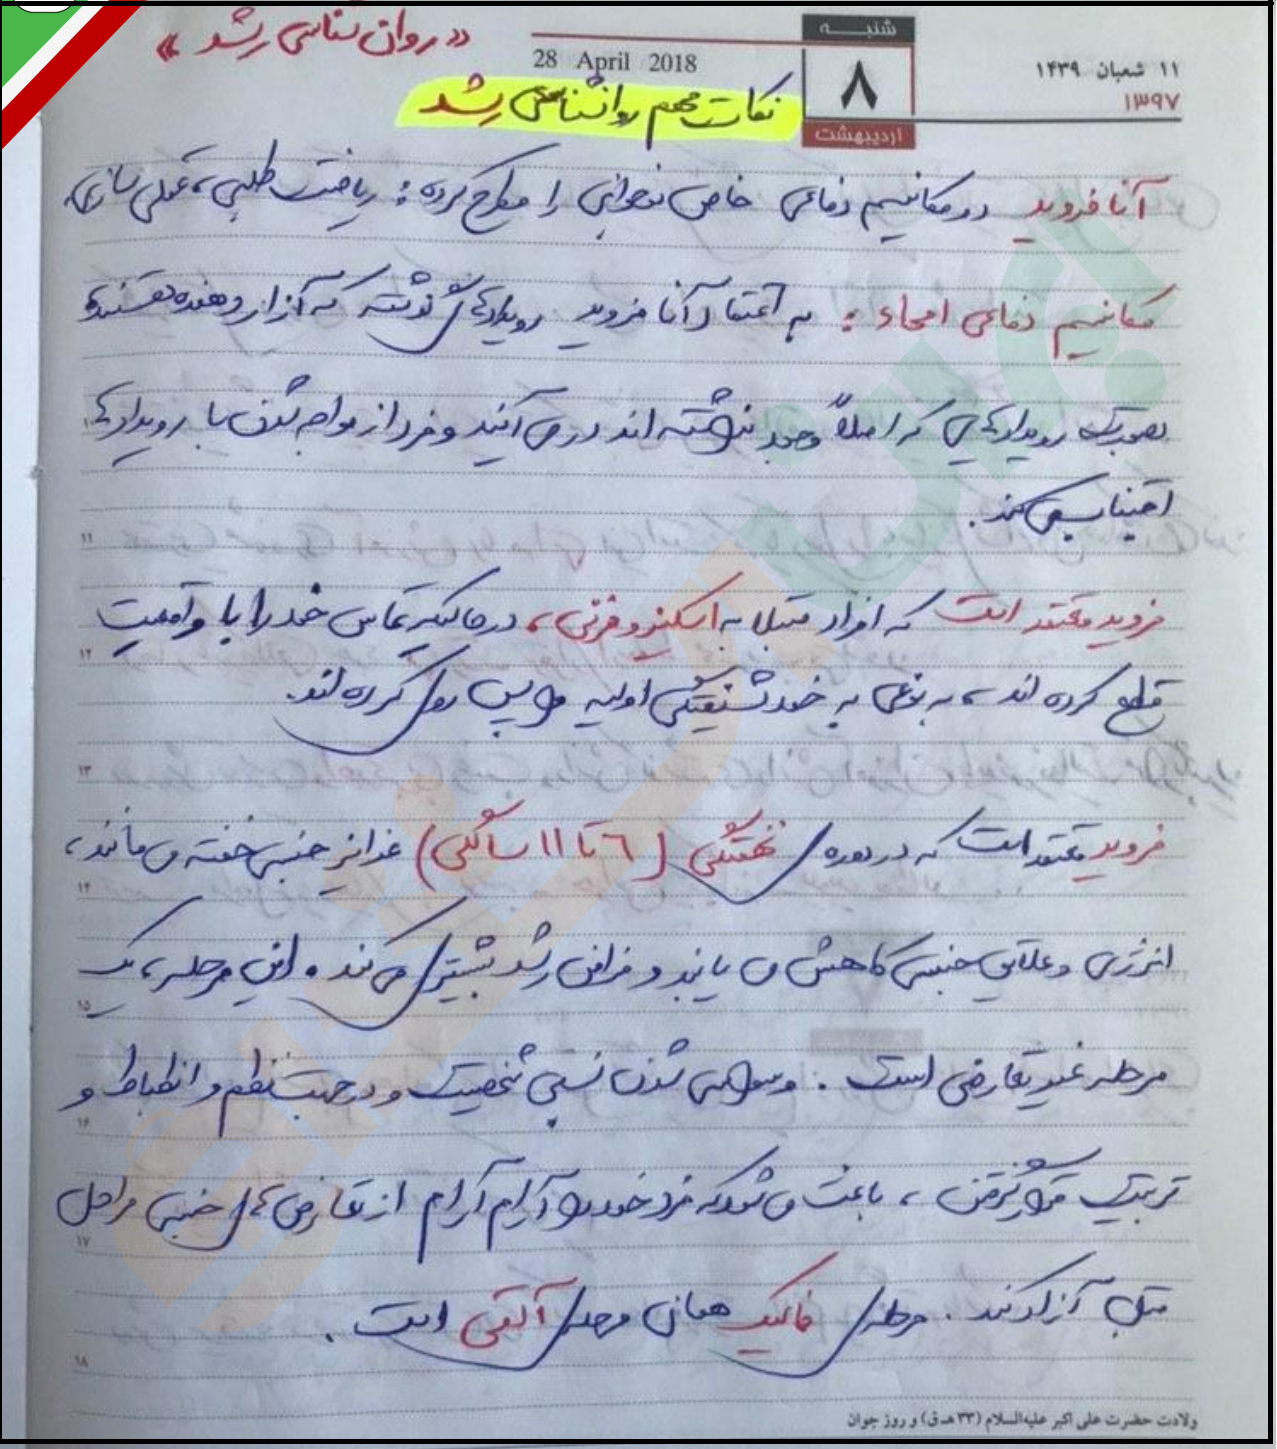 «روان شناسی رشد»
شنبه
28 April 2018
۸
۱۱ شعبان ۱۴۳۹
۱۳۹۷
اردیبهشت
نکات مهم روانشناسی رشد
آنا فروید دو مکانیسم دفاعی خاص نوجوانی را مطرح کرده: ریاضت طلبی، عقلی سازی
مکانیسم دفاعی امحاء: به اعتقاد آنا فروید رویدادهای گذشته که آزار دهنده هستند
بصورت رویدادهایی که اصلاً وجود نداشته اند در می آیند و فرد از مواجه شدن با رویدادها
اجتناب می کند.
۱۱
فروید معتقد است که افراد مبتلا به اسکیزوفرنی، در حالیکه تماس خود را با واقعیت
۱۲
قطع کرده اند، به نوعی به خودشیفتگی اولیه واپس روی کرده اند.
۱۳
فروید معتقد است که در دوره نهفتگی (۶ تا ۱۱ سالگی) غرایز جنسی خفته می مانند،
۱۴
انرژی و علایق جنسی کاهش می یابد و فرامن رشد بیشتری می کند. این مرحله، یک
۱۵
مرحله غیر تعارضی است. وسواسی شدن نسبی شخصیت و در جهت نظم و انظباط و
۱۶
تربیت قرار گرفتن، باعث می شود که فرد خود را آرام آرام از تعارض های جنسی مراحل
۱۷
قبل آزاد کند. مرحله فالیک همان مرحله آلتی است.
۱۸
ولادت حضرت علی اکبر علیه‌السلام (۳۳ هـ.ق) و روز جوان